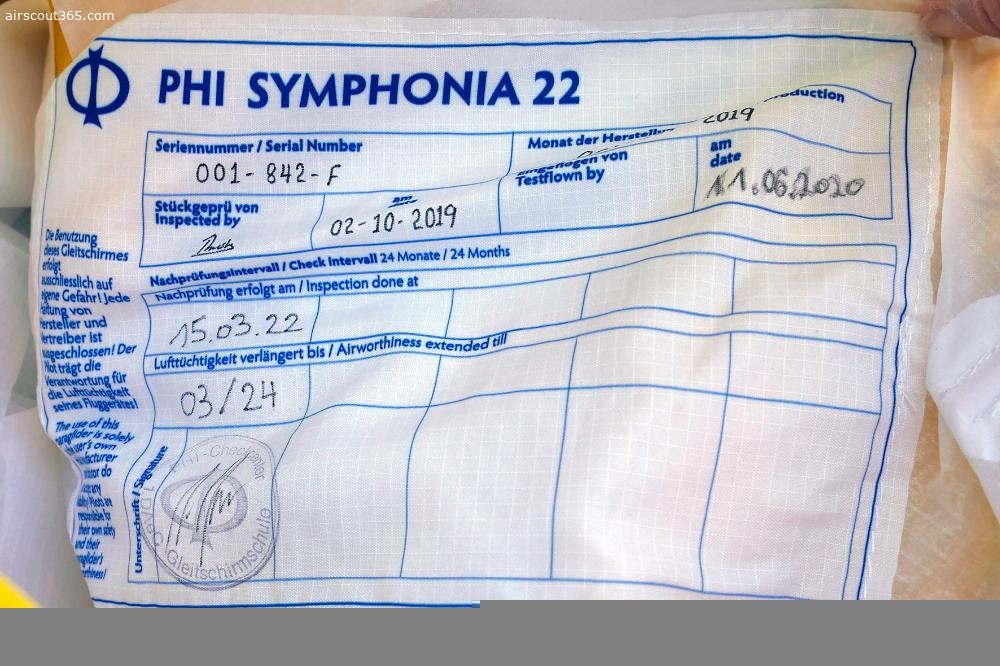 airscout365.com
PHI SYMPHONIA 22
Seriennummer / Serial Number
001-842-F
Monat der
2019
am
date
11.06.2020
von
Testflown by
Stückgeprü von
Inspected by
am
02-10-2019
Nachprüfungsintervall / Check Intervall 24 Monate / 24 Months
Nachprüfung erfolgt am / Inspection done at
15.03.22
Lufttüchtigkeit verlängert bis / Airworthiness extended till
03/24
Unterschrift / Signature
PHI-Checkcenter
Gleitschirmschule
Die Benutzung
dieses Gleitschirmes
erfolgt
ausschliesslich auf
eigene Gefahr! Jede
von
und
ist
Der
trägt die
Verantwortung für
die Lufttüchtigkeit
seines Fluggerätes!
The use of this
paraglider is solely
own
do
any
their own safety
and their